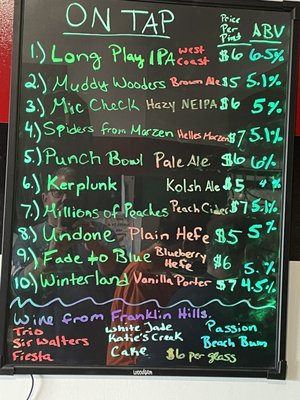 ON TAP
Price Per Pint
ABV
1.) Long Play IPA West Coast $6 6.5%
2.) Muddy Wooders Brown Ale $5 5.1%
3.) Mic Check Hazy NEIPA $6 5%
4.) Spiders from Marzen Helles Marzen $7 5.1%
5.) Punch Bowl Pale Ale $6 6%
6.) Kerplunk Kolsh Ale $5 4%
7.) Millions of Peaches Peach Cider $7 5.1%
8.) Undone Plain Hefe $5 5%
9.) Fade to Blue Blueberry Hefe $6 5.%
10.) Winterland Vanilla Porter $7 4.5%
Wine from Franklin Hills.
Trio White Jade Passion
Sir Walters Katie's Creek Beach Bum
Fiesta Cake $6 per glass